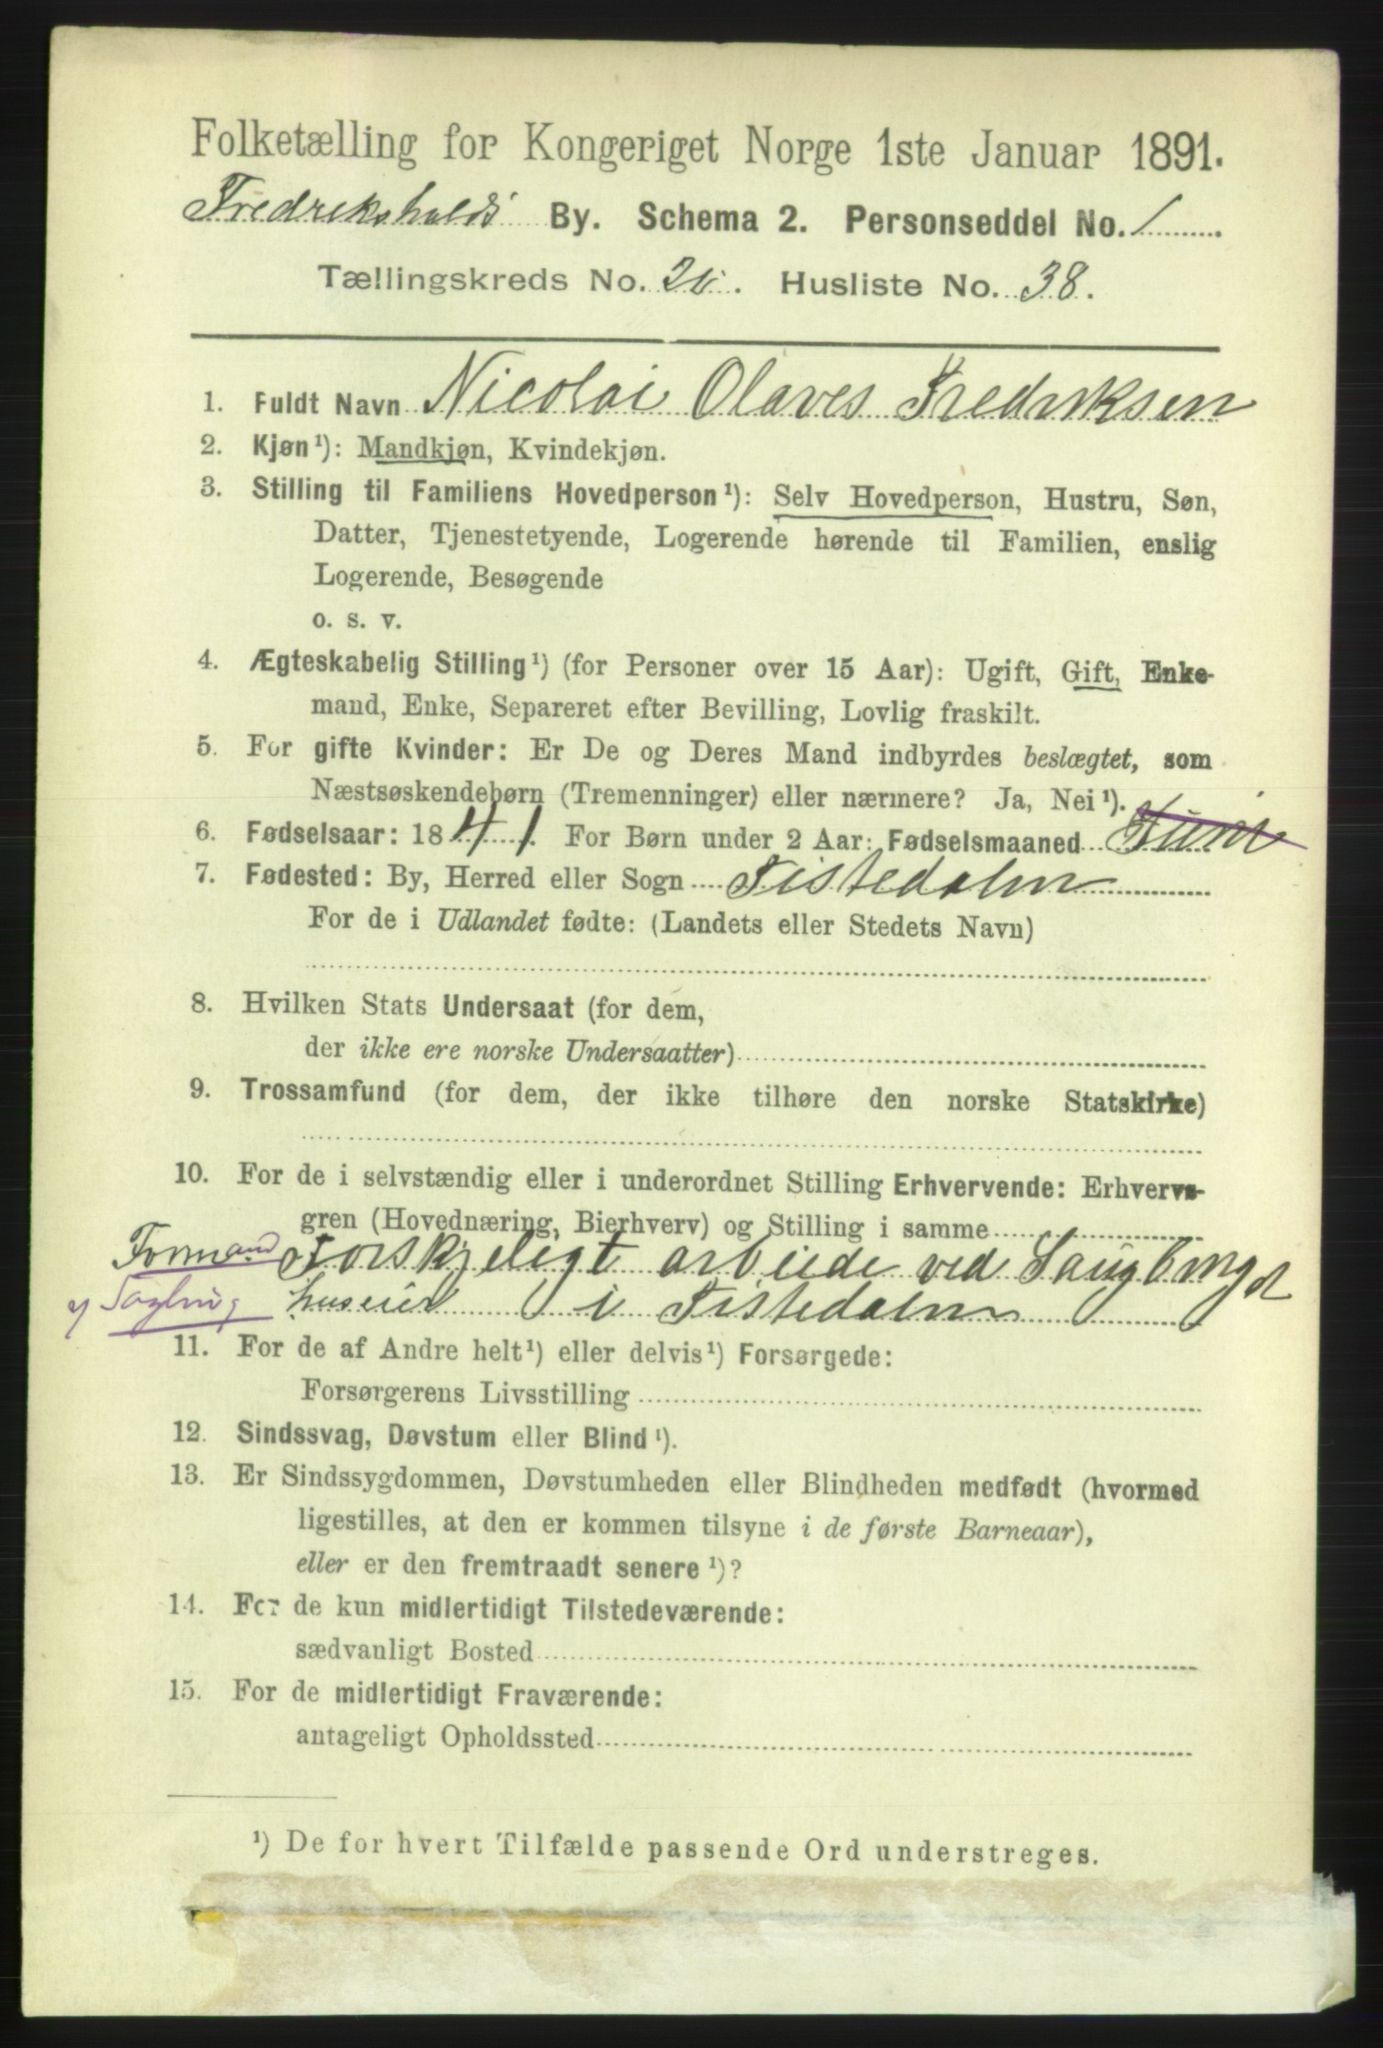 Folketælling for Kongeriget Norge 1ste Januar 1891.
Fredrikshalds By. Schema 2. Personseddel No. 1
Tællingskreds No. 20. Husliste No. 38.
1. Fuldt Navn Nicolai Olaves Fredriksen
2. Kjøn¹): Mandkjøn, Kvindekjøn.
3. Stilling til Familiens Hovedperson¹): Selv Hovedperson, Hustru, Søn,
Datter, Tjenestetyende, Logerende hørende til Familien, enslig
Logerende, Besøgende
o. s. v.
4. Ægteskabelig Stilling¹) (for Personer over 15 Aar): Ugift, Gift, Enke-
mand, Enke, Separeret efter Bevilling, Lovlig fraskilt.
5. For gifte Kvinder: Er De og Deres Mand indbyrdes beslægtet, som
Næstsøskendebørn (Tremenninger) eller nærmere? Ja, Nei¹).
6. Fødselsaar: 1841. For Børn under 2 Aar: Fødselsmaaned Juni
7. Fødested: By, Herred eller Sogn Tistedalen
For de i Udlandet fødte: (Landets eller Stedets Navn)
8. Hvilken Stats Undersaat (for dem,
der ikke ere norske Undersaatter)
9. Trossamfund (for dem, der ikke tilhøre den norske Statskirke)
10. For de i selvstændig eller i underordnet Stilling Erhvervende: Erhvervs-
gren (Hovednæring, Bierhverv) og Stilling i samme
Formand Forskjeligt arbeide ved Saugbruget
Sagbrug huseier i Tistedalen
11. For de af Andre helt¹) eller delvis¹) Forsørgede:
Forsørgerens Livsstilling
12. Sindssvag, Døvstum eller Blind¹).
13. Er Sindssygdommen, Døvstumheden eller Blindheden medfødt (hvormed
ligestilles, at den er kommen tilsyne i de første Barneaar),
eller er den fremtraadt senere¹)?
14. For de kun midlertidigt Tilstedeværende:
sædvanligt Bosted
15. For de midlertidigt Fraværende:
antageligt Opholdssted
¹) De for hvert Tilfælde passende Ord understreges.